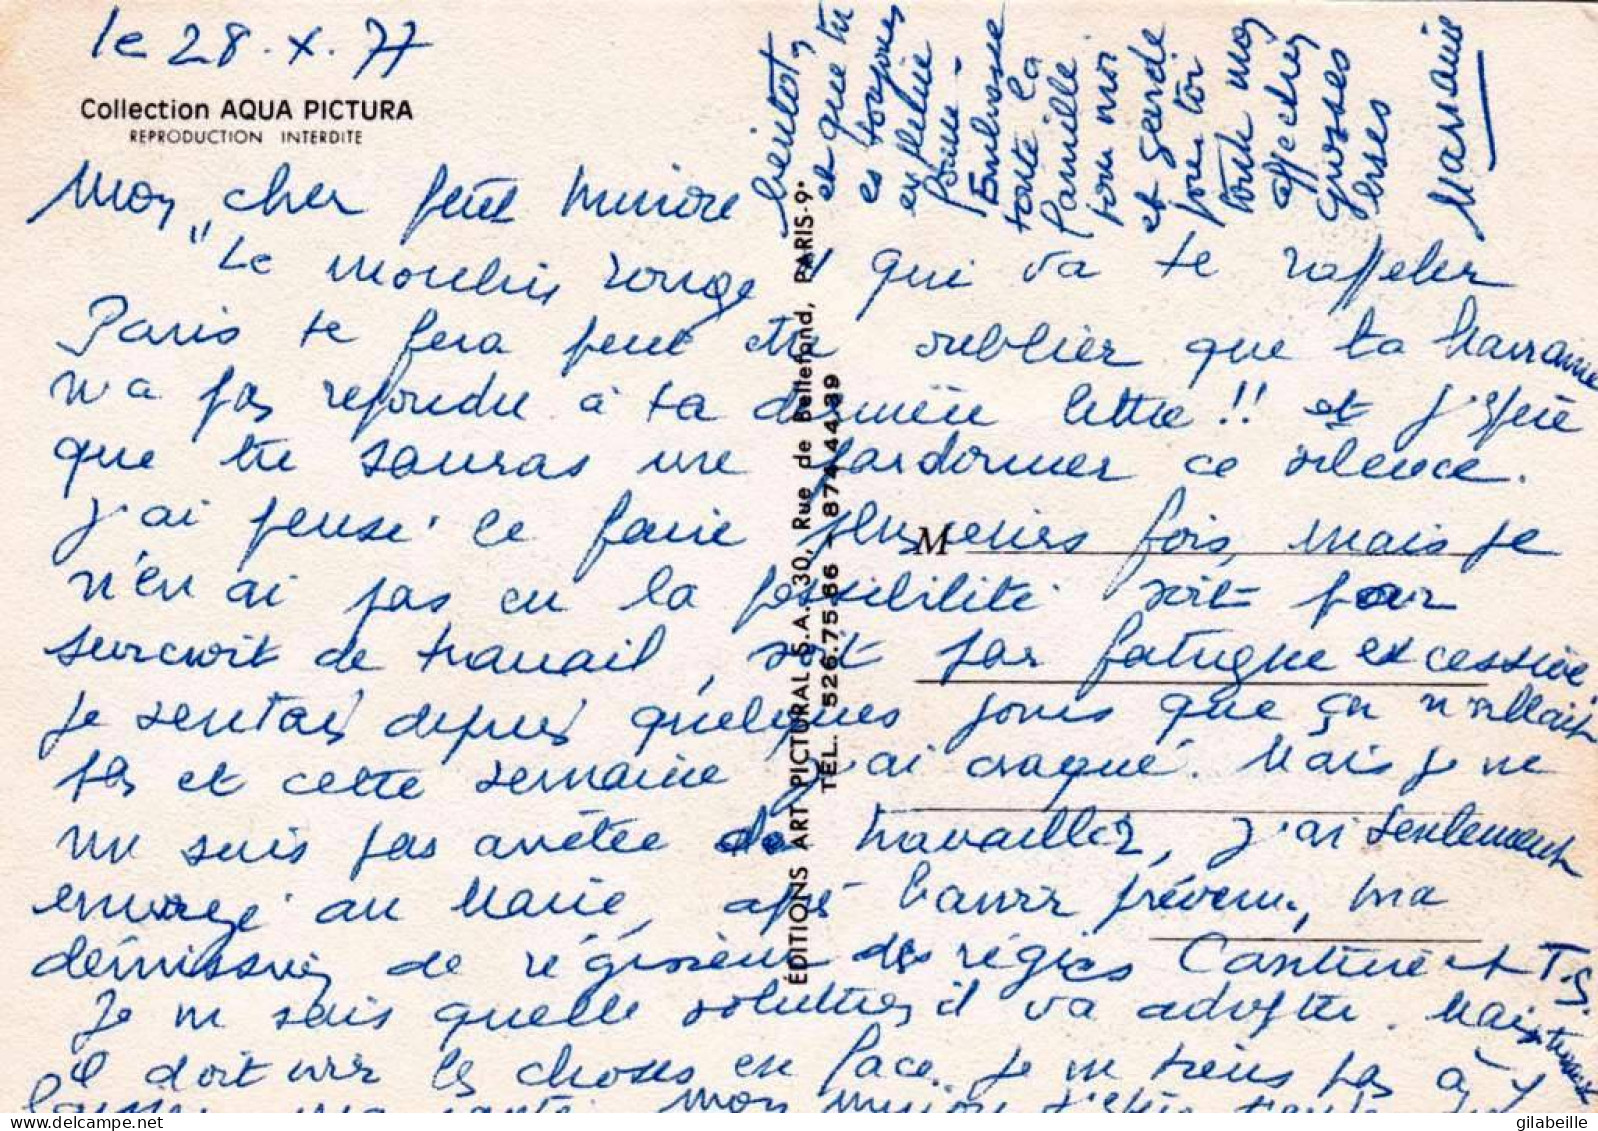 le 28.X.77
Collection AQUA PICTURA
REPRODUCTION INTERDITE
Mon cher petit
"Le moulin rouge" qui va te rappeler
Paris te fera peut être oublier que ta Marraine
n'a pas répondu à ta dernière lettre !! et j'espère
que tu sauras me pardonner ce silence.
J'ai pensé le faire plusieurs fois, mais je
n'en ai pas eu la possibilité soit par
surcroit de travail, soit par fatigue excessive
je sentais depuis quelques jours que ça n'allait
pas et cette semaine j'ai craqué. Mais je ne
me suis pas arrêtée de travailler, j'ai seulement
envoyé au Maire, après l'avoir prévenu, ma
démission de régisseur des régies Cantine et T.S.
Je ne sais quelle solution il va adopter. Mais
il doit voir les choses en face. Je ne tiens pas à y
laisser ma santé. Mon j'espère
bientôt,
et que tu
es toujours
en pleine
forme -
Embrasse
toute la
famille
pour moi
et garde
pour toi
toute mon
affection
grosses
bises
Marraine
ÉDITIONS ART PICTURAL S.A. 30, Rue de Bellefond, PARIS-9e
TÉL. 526.75.66 - 874.44.39
M
gilabeille